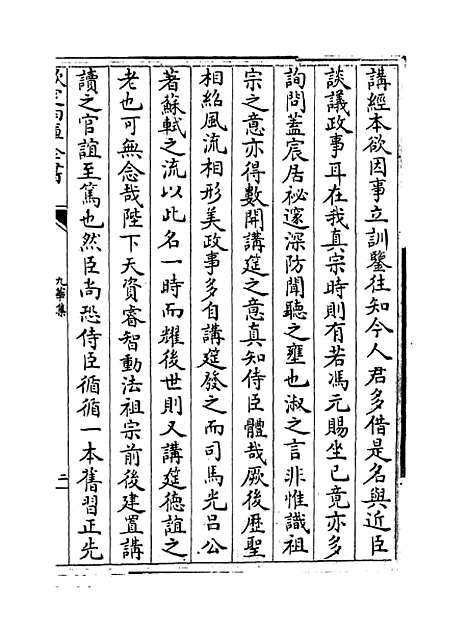 講經本欲因事立訓鑒往知今人君多借是名與近臣
談議政事耳在我真宗時則有若馮元賜坐已竟亦多
詢問蓋宸居祕邃深防聞聽之壅也淑之言非惟識祖
宗之意亦得數開講筵之意真知侍臣體哉厥後歴聖
相紹風流相形美政事多自講筵發之而司馬光吕公
著蘇軾之流以此名一時而耀後世則又講筵德誼之
老也可無念哉陛下天資睿智動法祖宗前後建置講
讀之官誼至篤也然臣尚恐侍臣循循一本舊習正先
欽定四庫全書
九華集
二